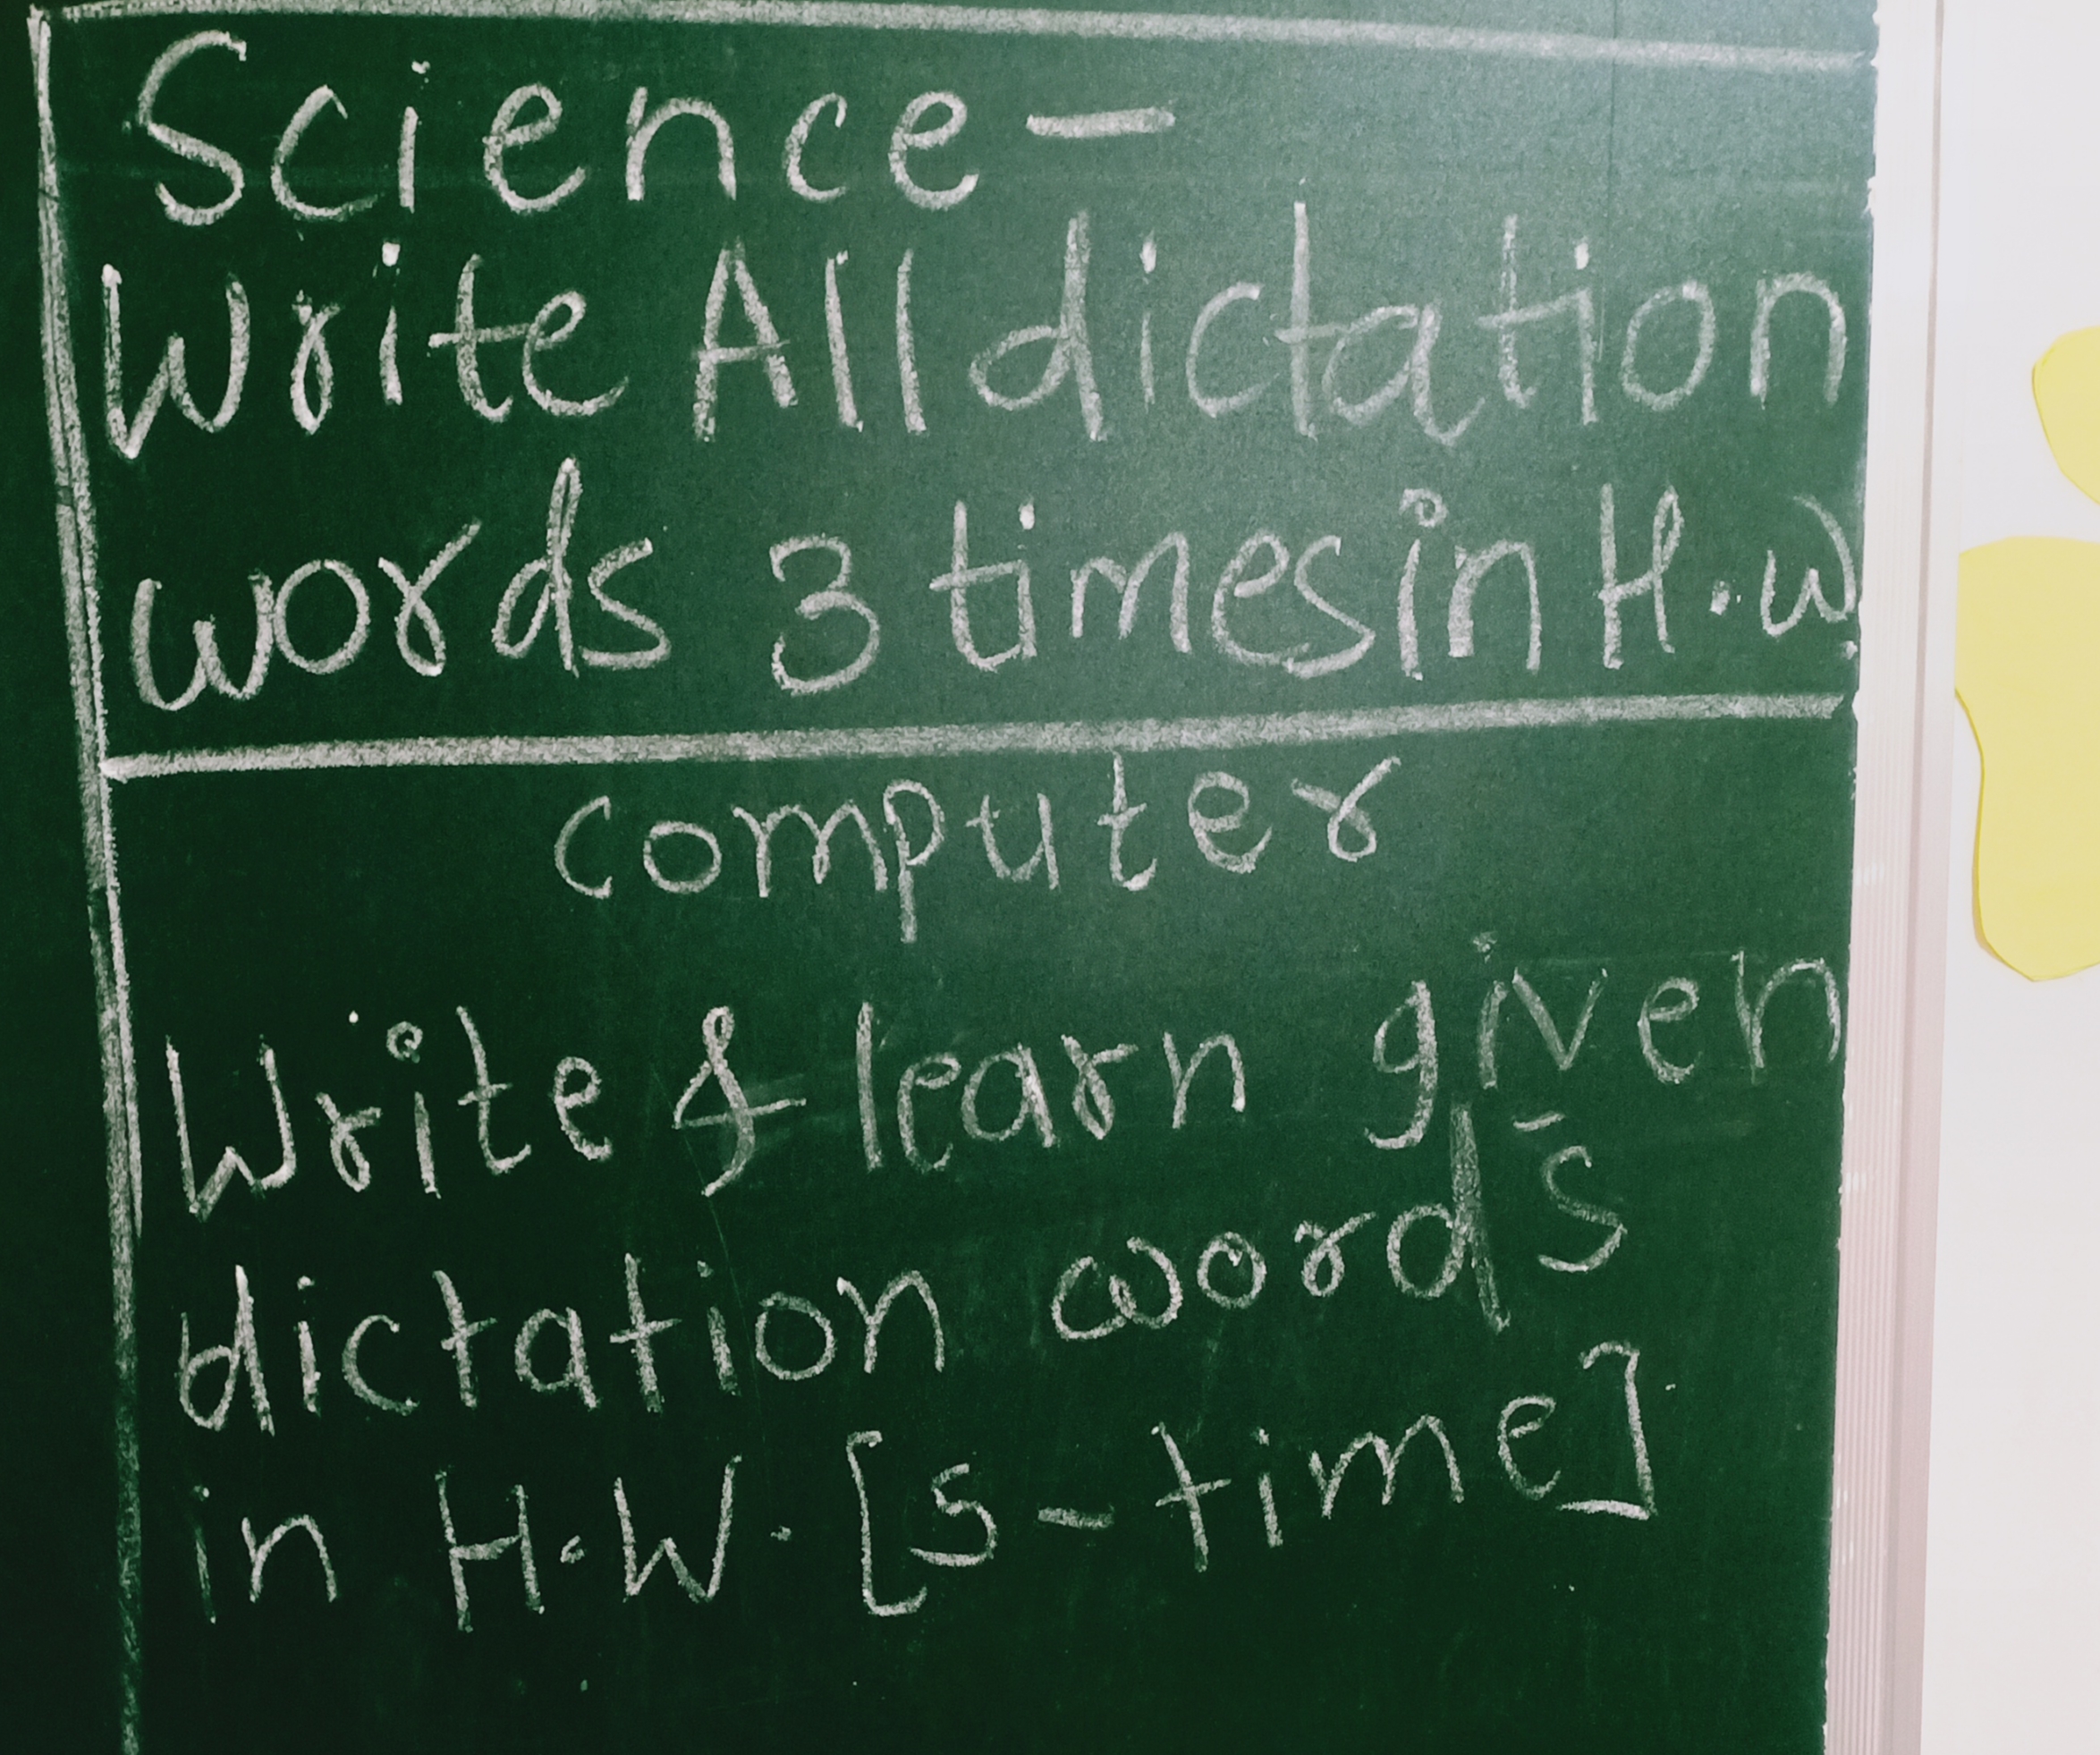 Science -
Write All dictation
words 3 times in H.W.
computer
Write & learn given
dictation words
in H.W. [5-time]